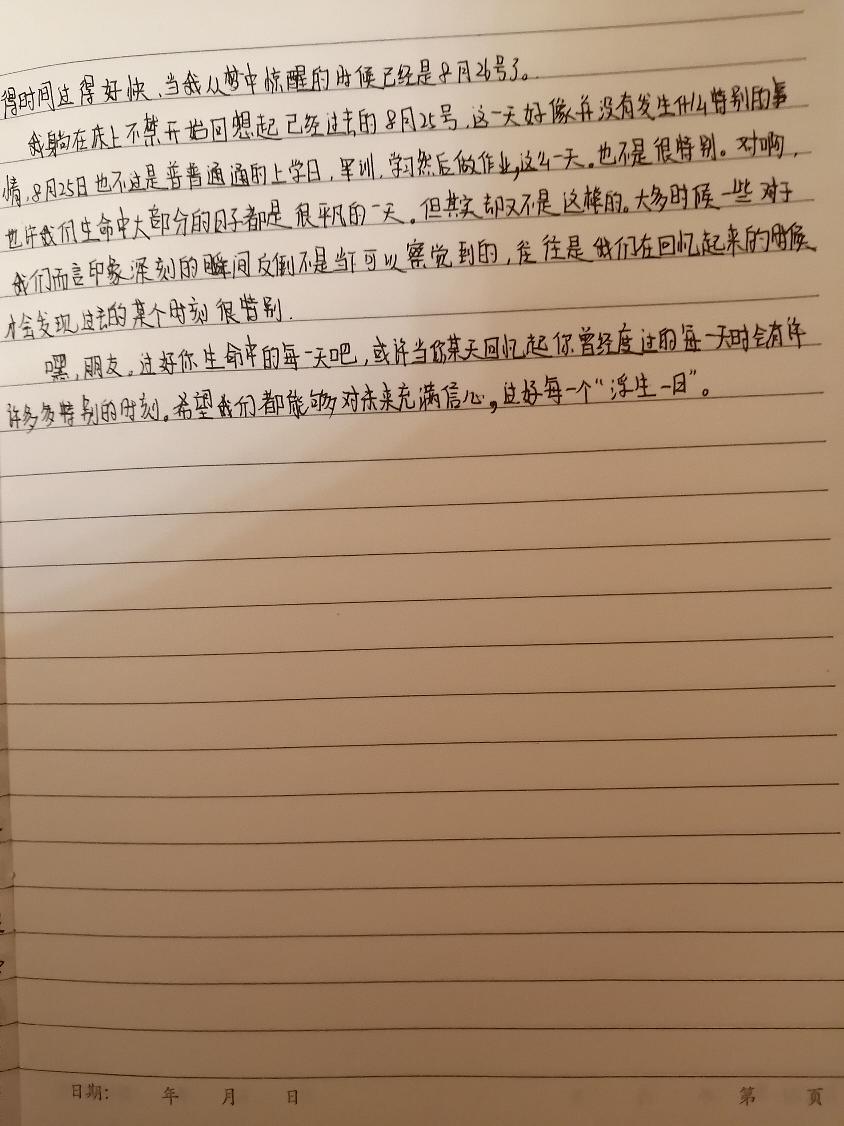 得时间过得好快、当我从梦中惊醒的时候已经是8月26号了。
我躺在床上不禁开始回想起已经过去的8月25号，这一天好像并没有发生什么特别的事
情，8月25日也不过是普普通通的上学日，军训，学习然后做作业，这么一天。也不是很特别。对啊，
也许我们生命中大部分的日子都是很平凡的一天。但其实却又不是这样的。大多时候一些对于
我们而言印象深刻的瞬间反倒不是当下可以察觉到的，往往是我们在回忆起来的时候
才会发现过去的某个时刻很特别.
嘿，朋友。过好你生命中的每一天吧，或许当你某天回忆起你曾经度过的每一天时会有许
许多多特别的时刻。希望我们都能够对未来充满信心，过好每一个“浮生一日”。
日期： 年 月 日 第 页